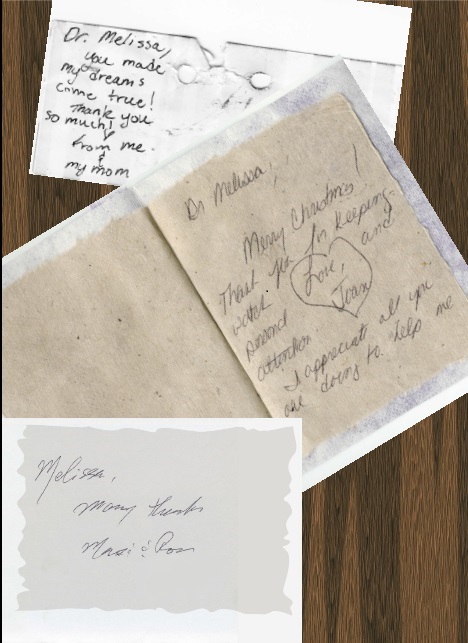 Dr. Melissa,
you made
my dreams
come true!
Thank you
so much!
from me
&
my mom
Dr Melissa!
Merry Christmas!
Thank you for keeping
watch and
personal
attention
Love,
Joan
I appreciate all you
are doing to help me
Melissa,
Many thanks
&